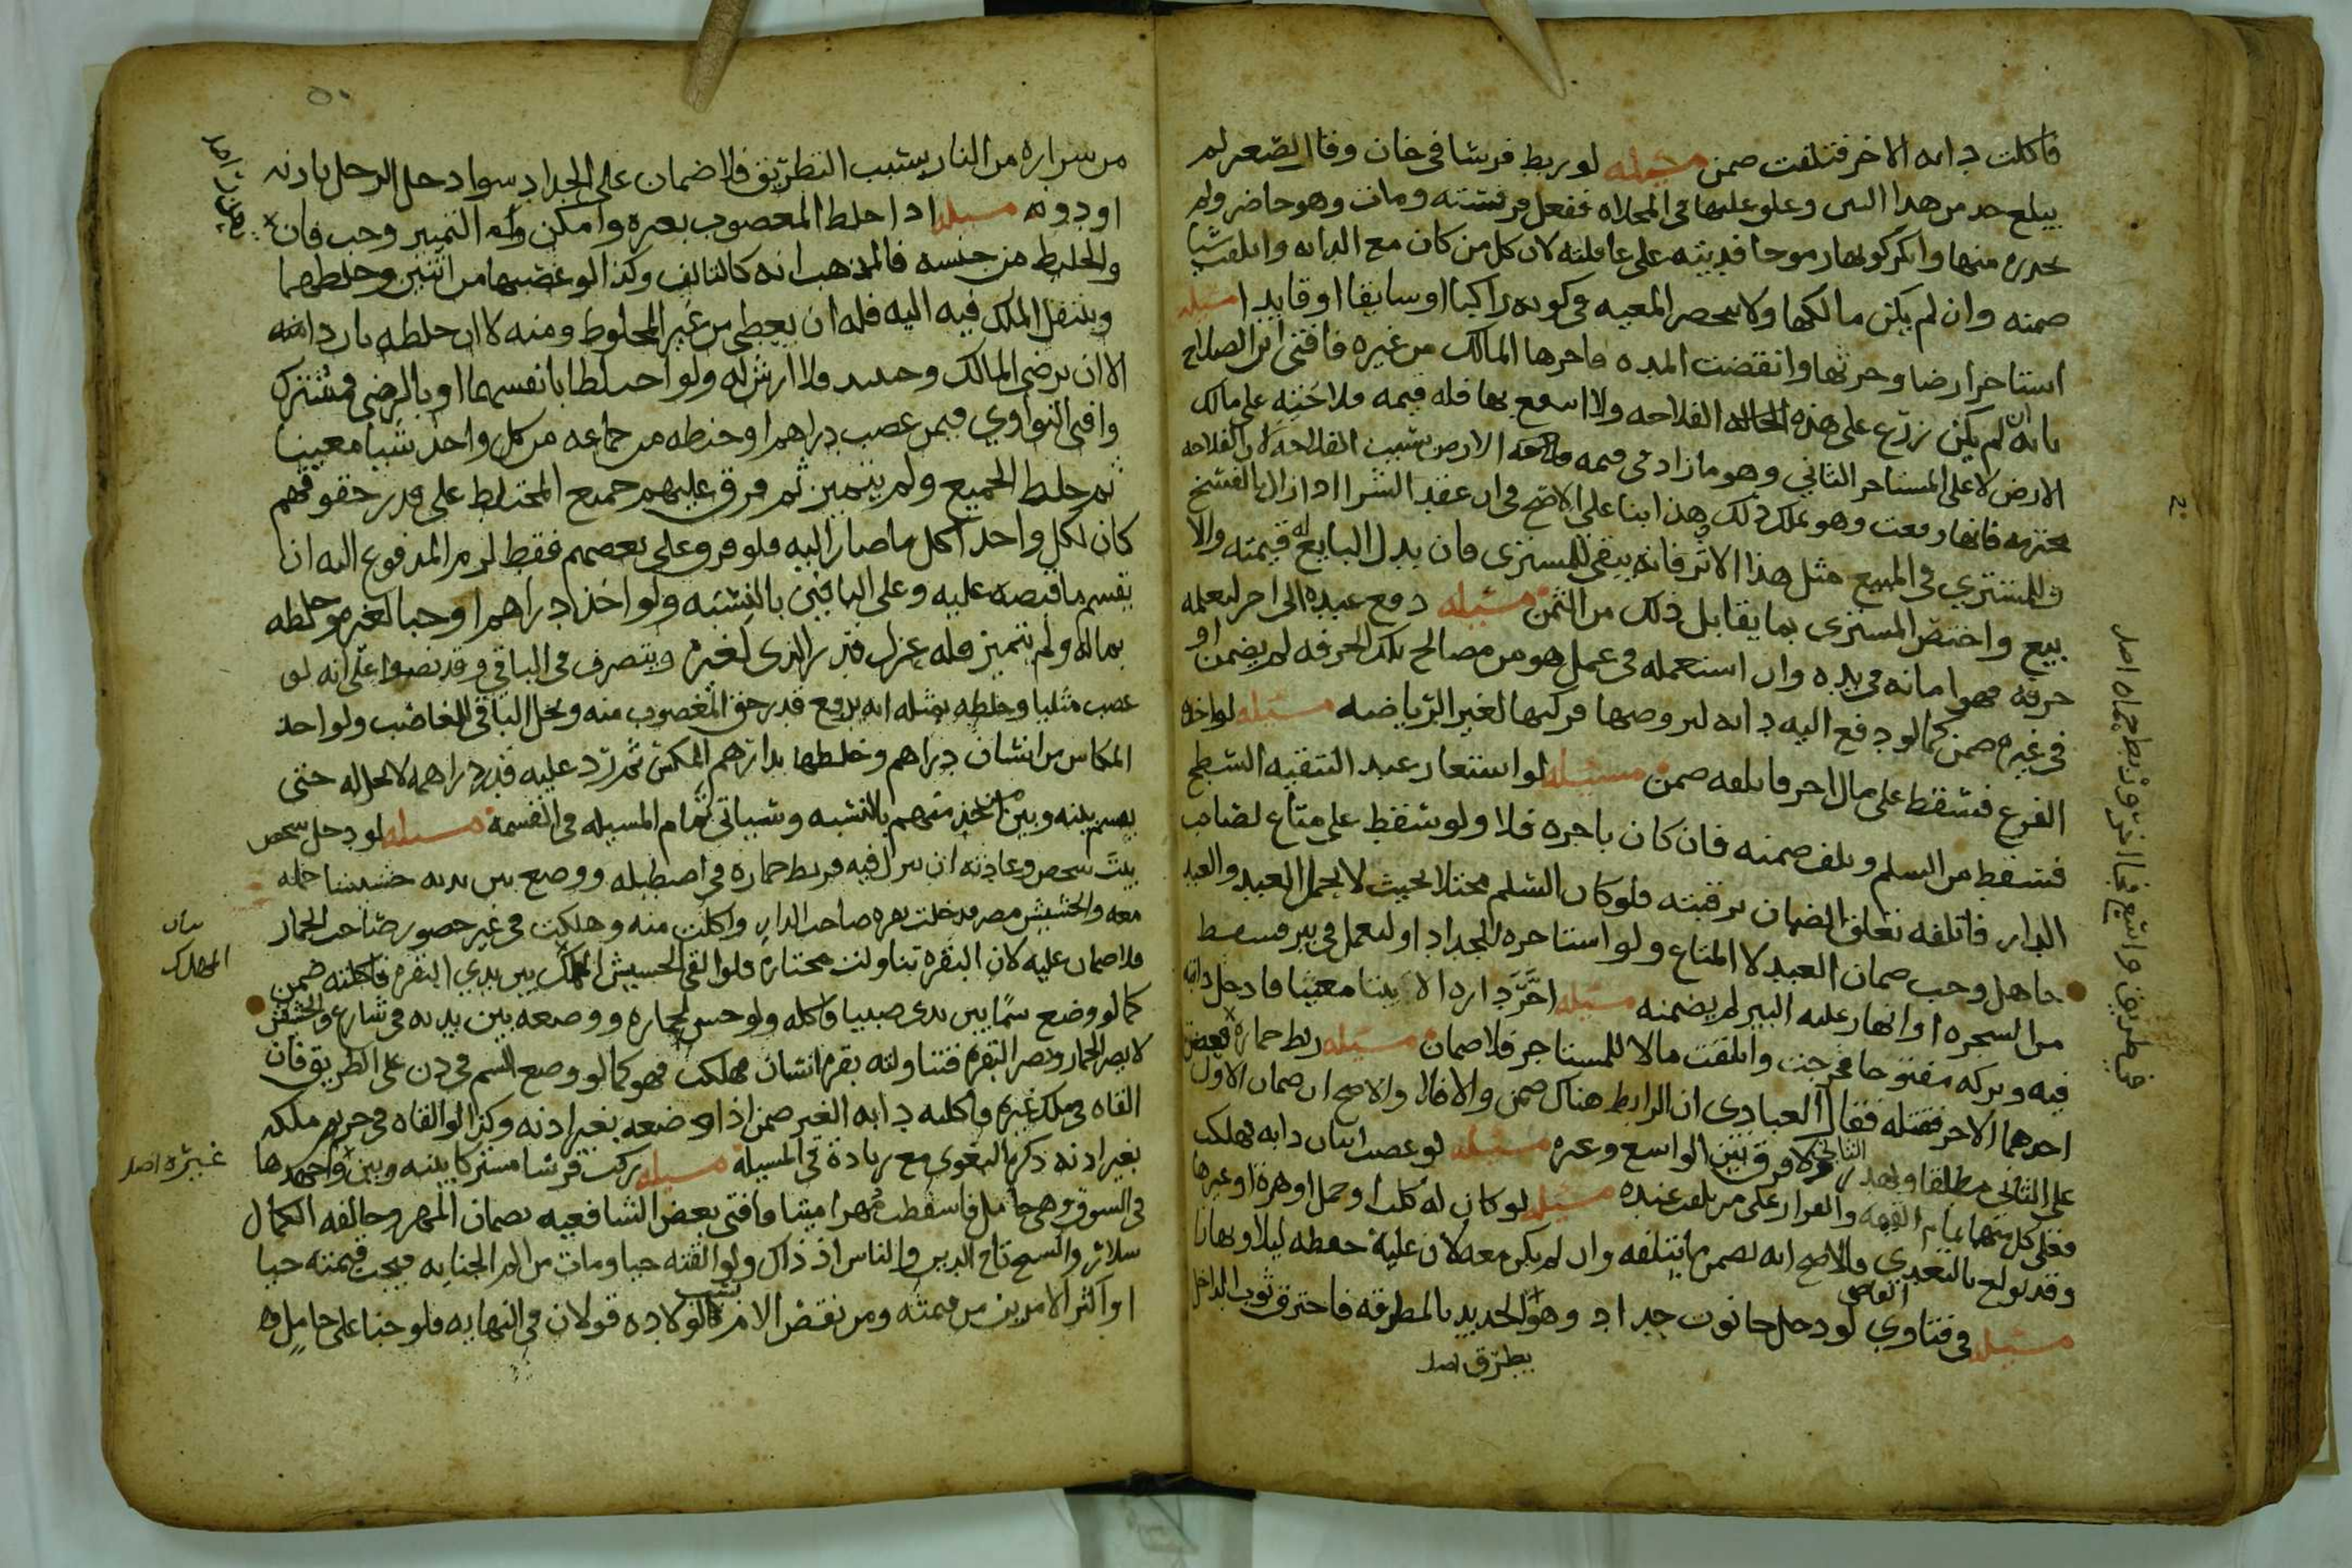 فاكلت دابه الاخر فتلفت ضمن مسئله لو ربط فرسا في خان وقال لصغير لم
يبلغ حد من هذا السن وعلو عليها في المخلاه ففعل فرفسته ومات وهو حاضر ولم
يحذره منها وانكر كونها رموحا فديته على عاقلته لان كل من كان مع الدابه واتلفت شيا
ضمنه وان لم يكن مالكها ولا ينحصر المعيه في كونه راكبا او سايقا او قايدا مسئله
استاجر ارضا وحرثها وانقضت المده فاجرها المالك من غيره فافتى ابن الصلاح
بانه ان لم يكن زرع على هذه الحاله الفلاحه ولا انتفع بها فله قيمه فلاحته على مالك
الارض لا على المستاجر الثاني وهو مازاد في قيمه الارض بسبب الفلاحه لان الفلاحه
محترمه فانها وقعت وهو يملك ذلك وهذا بنا على الاصح في ان عقد الشرا اذا زال بالفسخ
وللمشتري في المبيع مثل هذا الاثر فانه يبقى للمشتري فان بذل البايع له قيمته والا
بيع واختص المشتري بما يقابل ذلك من الثمن مسئله دفع عبده الى اخر ليعلمه
حرفه فهو امانه في يده وان استعمله في عمل هو من مصالح تلك الحرفه لم يضمن او
في غيره ضمن كما لو دفع اليه دابه ليروضها فركبها لغير الرياضه مسئله لو اخذه
الفزع فسقط على مال اخر فاتلفه ضمن مسئله لو استعار عبد لتنقيه السطح
فسقط من السلم وتلف ضمنه فان كان باجره فلا ولو سقط على متاع لصاحب
الدار فاتلفه تعلق الضمان برقبته فلو كان السلم مختلا بحيث لا يحمل العبد والعبد
جاهل وجب ضمان العبد لا المتاع ولو استاجره للجداد او ليعمل في بير فسقط
من الشجره او انهار عليه البير لم يضمنه مسئله اجر داره الا بيتا معينا فادخل دابته
فيه وتركه مفتوحا فخرجت واتلفت مالا للمستاجر فلا ضمان مسئله ربط حماره فعض
احدهما الاخر فقتله فقال العبادي ان الرابط هناك ضمن والا فلا والاصح ان ضمان الاول
على الثاني مطلقا ولا فرق بين الواسع وغيره مسئله لو غصب اثنان دابه فهلكت
فعلى كل منهما تمام القيمه والقرار على من تلفت عنده مسئله لو كان له كلب او جمل او هره او غيرها
وقد تولع بالتعدي فالاصح انه يضمن ما يتلفه وان لم يكن معه لان عليه حفظه ليلا ونهارا
مسئله في فتاوي القاضي لو دخل حانوت حداد وهو الحديد بالمطرقه فاحترق ثوب الداخل
يطرق اصل
من شراره من النار بسبب التطريق فلا ضمان على الحداد سوا دخل الرجل باذنه
او دونه مسئله اذا خلط المغصوب بغيره وامكن التمييز وجب فان
والخليط من جنسه فالمذهب انه كالتالف وكذا لو غصبهما من اثنين وخلطهما
وينتقل الملك فيه اليه فله ان يعطي من غير المخلوط ومنه لا ان خلطه باردا منه
الا ان يرضى المالك وحينئذ فلا ارش له ولو اختلطا بانفسهما او بالرضى فمشترك
وافتى النواوي فيمن غصب دراهم او حنطه من جماعه من كل واحد شيا معينا
ثم خلط الجميع ولم يتميز ثم فرق عليهم جميع المختلط على قدر حقوقهم
كان لكل واحد اكل ما صار اليه فلو فرق على بعضهم فقط لزم المدفوع اليه ان
يقسم ما قبضه عليه وعلى الباقين بالنسبه ولو اخذ دراهم او حبا لغيره وخلطه
بماله ولم يتميز فله عزل قدر الذي لغيره ويتصرف في الباقي وقد نصوا على انه لو
غصب مثليا وخلطه بمثله انه يدفع قدر حق المغصوب منه ويحل الباقي للغاصب ولو اخذ
المكاس من انسان دراهم وخلطها بدراهم المكس ثم رد عليه قدر دراهمه لا تحل له حتى
يقسم بينه وبين من اخذ منهم بالنسبه وسياتي تمام المسيله في القسمه مسئله لو دخل شخص
بيت شخص وعادته ان ينزل فيه فربط حماره في اصطبله ووضع بين يديه حشيشا حمله
معه والحشيش مضر فدخلت بقره صاحب الدار واكلت منه وهلكت في غير حضور صاحب الحمار
فلا ضمان عليه لان البقره تناولت مختاره فلو القى الحشيش المهلك بين يدي البقره فاكلته ضمن
كما لو وضع سما بين يدي صبيا فاكله ولو حش لحماره ووضعه بين يديه في شارع والحشيش
لا يضر الحمار ويضر البقره فتناولته بقره انسان فهلكت فهو كما لو وضع السم في دن على الطريق فان
القاه في ملك غيره فاكلته دابه الغير ضمن اذا وضعه بغير اذنه وكذا لو القاه في حريم ملكه
بغير اذنه ذكره البغوي مع زياده في المسيله مسئله ركب فرسا مشتركا بينه وبين
في السوق وهي حامل فاسقطت مهرا ميتا فافتى بعض الشافعيه بضمان المهر وخالفه الكمال
سلار والشيخ تاج الدين والناس اذ ذاك ولو القته حيا ومات من الم الجنايه فيجب قيمته حيا
او اكثر الامرين من قيمته ومن نقص الام بسبب الولاده قولان في النهايه فلو جنا على حامل
بيان
المهلك
غيره اصل